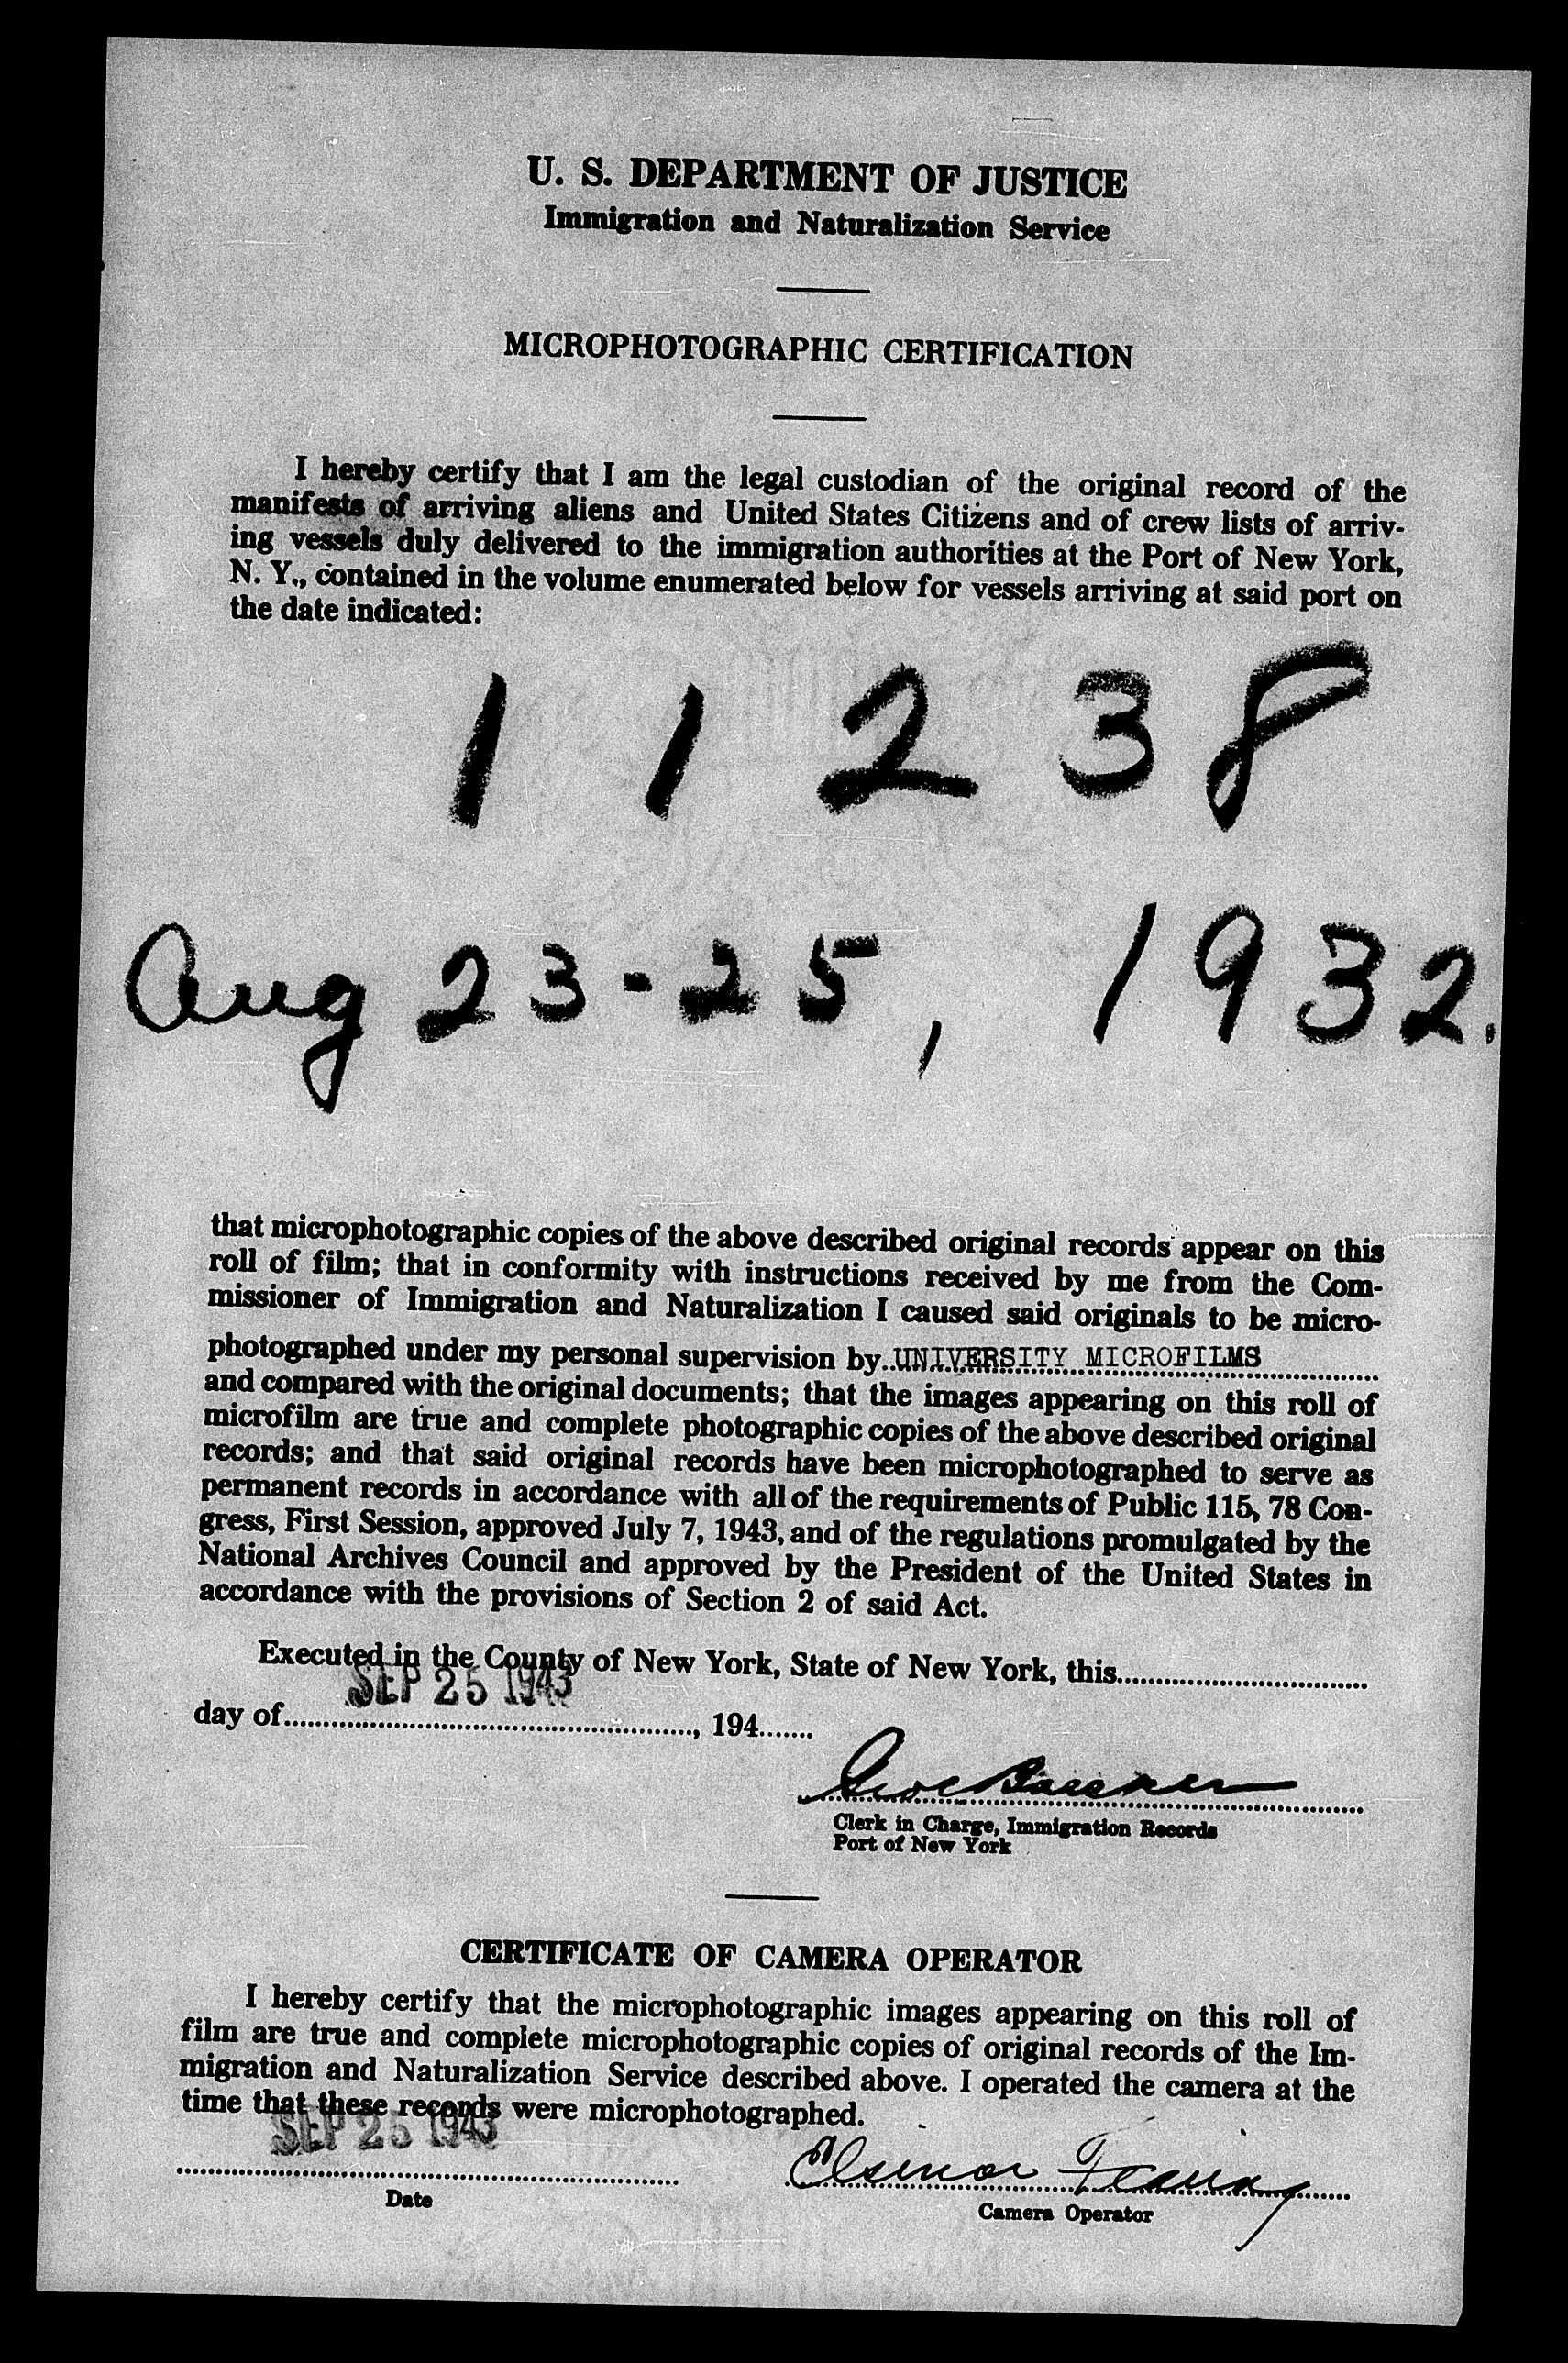 U. S. DEPARTMENT OF JUSTICE
Immigration and Naturalization Service
MICROPHOTOGRAPHIC CERTIFICATION
I hereby certify that I am the legal custodian of the original record of the
manifests of arriving aliens and United States Citizens and of crew lists of arriv-
ing vessels duly delivered to the immigration authorities at the Port of New York,
N. Y., contained in the volume enumerated below for vessels arriving at said port on
the date indicated:
11238
Aug 23-25, 1932.
that microphotographic copies of the above described original records appear on this
roll of film; that in conformity with instructions received by me from the Com-
missioner of Immigration and Naturalization I caused said originals to be micro-
photographed under my personal supervision by UNIVERSITY MICROFILMS
and compared with the original documents; that the images appearing on this roll of
microfilm are true and complete photographic copies of the above described original
records; and that said original records have been microphotographed to serve as
permanent records in accordance with all of the requirements of Public 115, 78 Con-
gress, First Session, approved July 7, 1943, and of the regulations promulgated by the
National Archives Council and approved by the President of the United States in
accordance with the provisions of Section 2 of said Act.
Executed in the County of New York, State of New York, this
SEP 25 1943
day of , 194
Clerk in Charge, Immigration Records
Port of New York
CERTIFICATE OF CAMERA OPERATOR
I hereby certify that the microphotographic images appearing on this roll of
film are true and complete microphotographic copies of original records of the Im-
migration and Naturalization Service described above. I operated the camera at the
time that these records were microphotographed.
SEP 25 1943
Date
Camera Operator